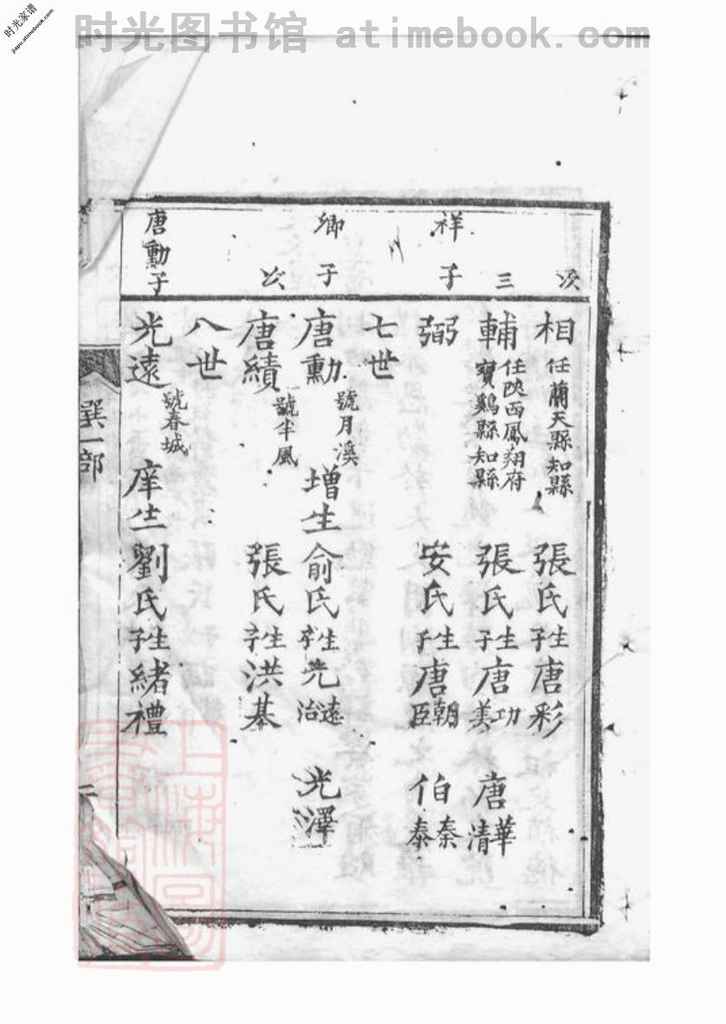 时光图书馆 atimebook.com
时光家谱
jiapu.atimebook.com
次
相 任藺天縣知縣 張氏 生子 唐彩
三
輔 任陝西鳳翔府寶鷄縣知縣 張氏 生子 唐 功美 唐 華清
祥子
弼 安氏 生子 唐 朝臣 伯 秦泰
七世
卿子
唐勳 號月溪 增生 俞氏 生子 光 遠治 光澤
次
唐績 號半風 張氏 生子 洪基
八世
唐勳子
光遠 號春城 庠生 劉氏 生子 緒禮
撰一部